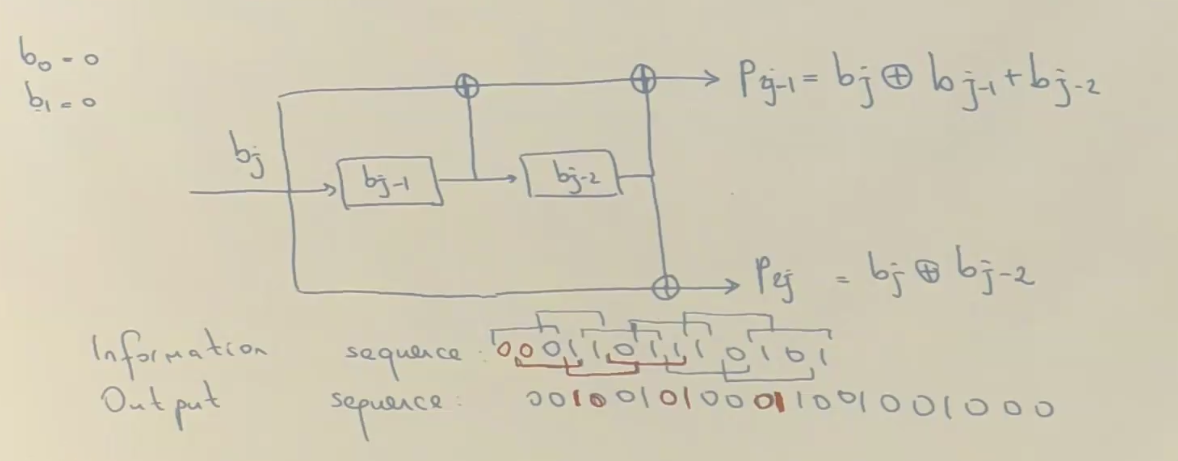 b₀ = 0
b₁ = 0
P₂ⱼ₋₁ = bⱼ ⊕ bⱼ₋₁ + bⱼ₋₂
bⱼ
bⱼ₋₁
bⱼ₋₂
P₂ⱼ = bⱼ ⊕ bⱼ₋₂
Information sequence : 0001101110101
Output sequence : 0010010100011001001000